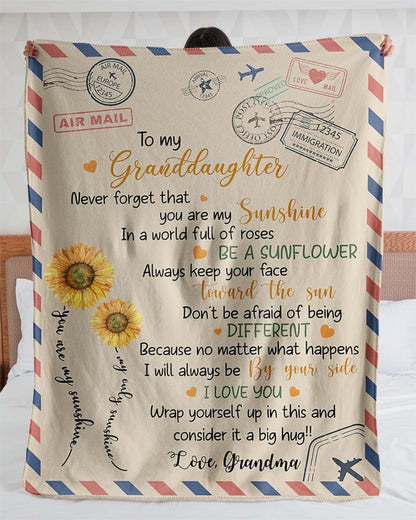 AIR MAIL
EUROPE
12345
ARRIVAL
LOVE MAIL
APPROVED
POST OFFICE
POST OFFICE
12345
IMMIGRATION
AIR MAIL
To my
Granddaughter
Never forget that
you are my Sunshine
In a world full of roses
BE A SUNFLOWER
Always keep your face
toward the sun
Don't be afraid of being
DIFFERENT
Because no matter what happens
I will always be By your side
I LOVE YOU
Wrap yourself up in this and
consider it a big hug!!
Love, Grandma
You are my sunshine
my only sunshine